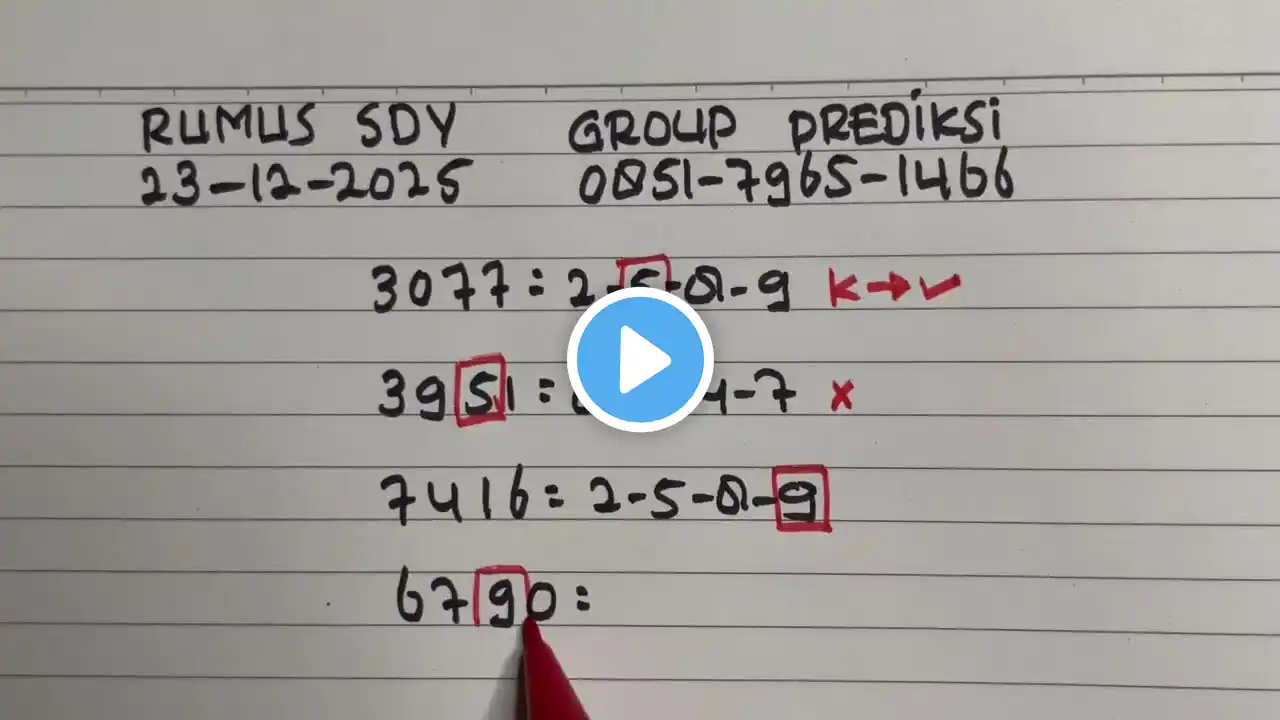 RUMUS SDY GROUP PREDIKSI
23-12-2025 0851-7965-1466
3077 = 2-5-8-9 K→✓
3951 = 4-7 x
7416 = 2-5-8-9
6790 =